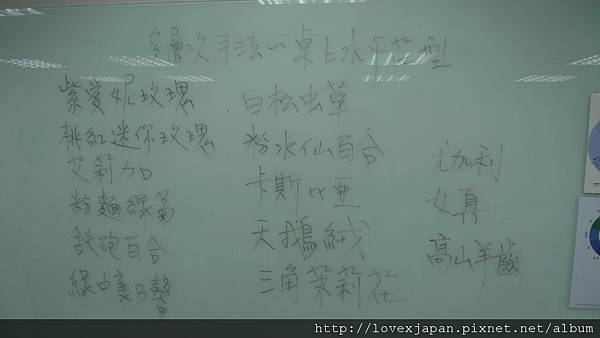 多層次手法~桌上水平花型
紫愛妮玫瑰
桃紅迷你玫瑰
艾莉加
粉麵線菊
鉄砲百合
白松虫草
粉水仙百合
卡斯比亞
天鵝絨
三角茉莉花
尤伽利
女真
高山羊齒
http://lovexjapan.pixnet.net/album